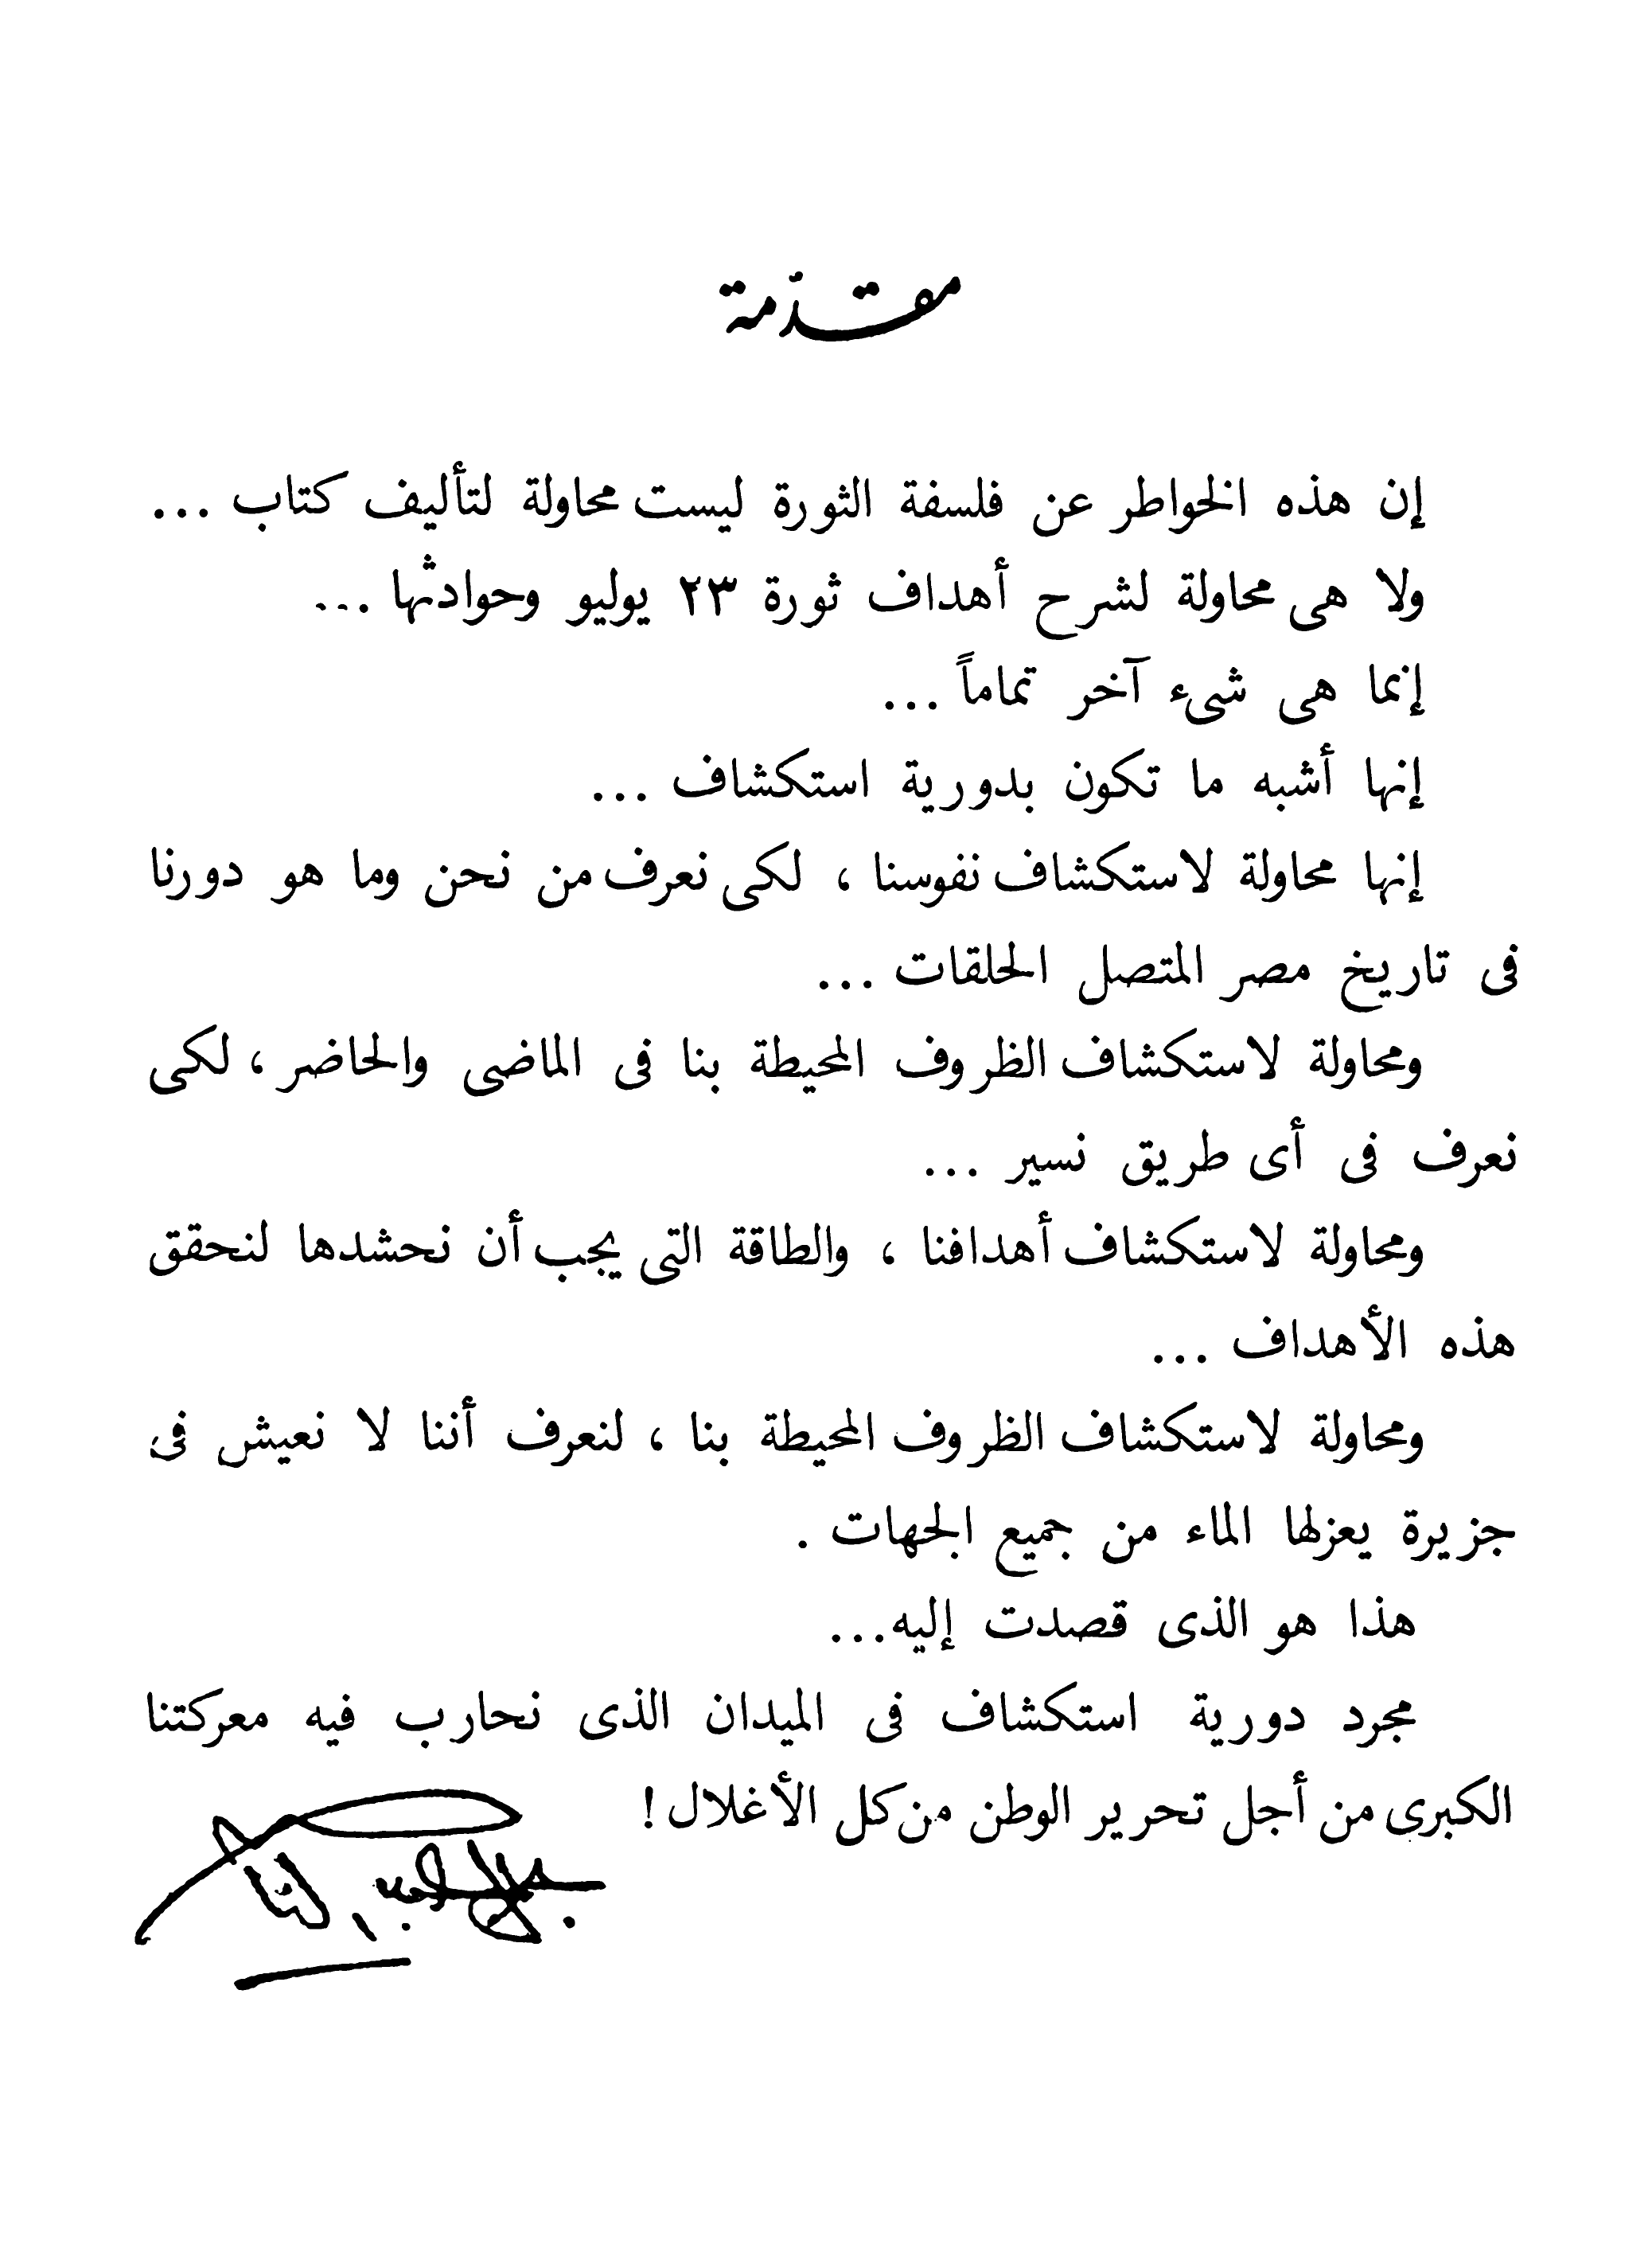 مقدمة
إن هذه الخواطر عن فلسفة الثورة ليست محاولة لتأليف كتاب ...
ولا هى محاولة لشرح أهداف ثورة ٢٣ يوليو وحوادثها ...
إنما هى شىء آخر تماماً ...
إنها أشبه ما تكون بدورية استكشاف ...
إنها محاولة لاستكشاف نفوسنا ، لكى نعرف من نحن وما هو دورنا
فى تاريخ مصر المتصل الحلقات ...
ومحاولة لاستكشاف الظروف المحيطة بنا فى الماضى والحاضر ، لكى
نعرف فى أى طريق نسير ...
ومحاولة لاستكشاف أهدافنا ، والطاقة التى يجب أن نحشدها لنحقق
هذه الأهداف ...
ومحاولة لاستكشاف الظروف المحيطة بنا ، لنعرف أننا لا نعيش فى
جزيرة يعزلها الماء من جميع الجهات .
هذا هو الذى قصدت إليه...
مجرد دورية استكشاف فى الميدان الذى نحارب فيه معركتنا
الكبرى من أجل تحرير الوطن من كل الأغلال !